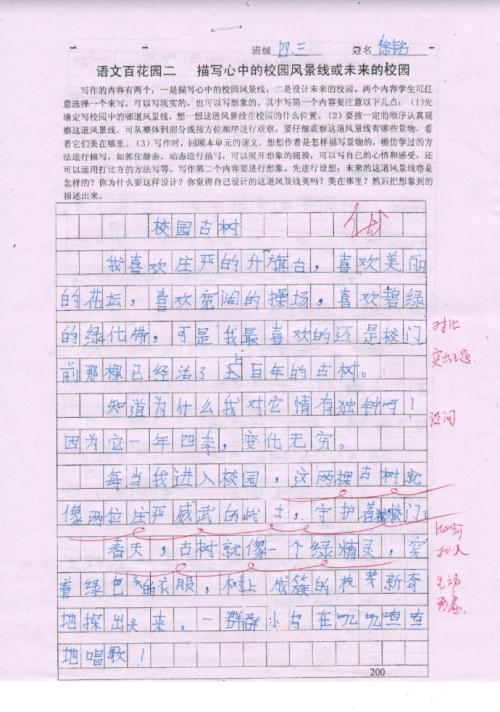 班级 四.三 姓名 徐铭
语文百花园二 描写心中的校园风景线或未来的校园
写作的内容有两个：一是描写心中的校园风景线，二是设计未来的校园。两个内容学生可任
意选择一个来写，可以写现实的，也可以写想象的，其中写第一个内容要注意以下几点：(1)先
确定写校园中的哪道风景线，想一想这道风景线在校园的什么位置。(2)要按一定的顺序认真观
察这道风景线，可从整体到部分或按方位顺序进行观察。要仔细观察这道风景线有哪些景物，看
看它们美在哪里。(3)写作时，回顾本单元的课文，想想作者是怎样描写景物的，模仿学过的方
法进行描写，如抓住静态、动态进行描写，可以展开想象的翅膀，可以写自己的心情和感受，还
可以运用打比方的方法写等。写作第二个内容要进行想象，先进行设想：未来的这道风景线将是
怎样的？你为什么要这样设计？你觉得自己设计的这道风景线美吗？美在哪里？然后把想象到的
描述出来。
校园古树
优
我喜欢庄严的升旗台，喜欢美丽
的花坛，喜欢宽阔的操场，喜欢碧绿
的绿化带，可是我最喜欢的还是校门
对比
前那棵已经活了上百年的古树。
突出主题
知道为什么我对它情有独钟吗！
设问
因为它一年四季，变化无穷。
每当我进入校园，这两棵古树就
像两位庄严威武的战士，守护着校门。
比喻
春天，古树就像一个绿精灵，穿
拟人
着绿色的衣服，树上成簇的枝芽新奇
生动
地探出头来。一群群小鸟在叽叽喳喳
形象
地唱歌！
200